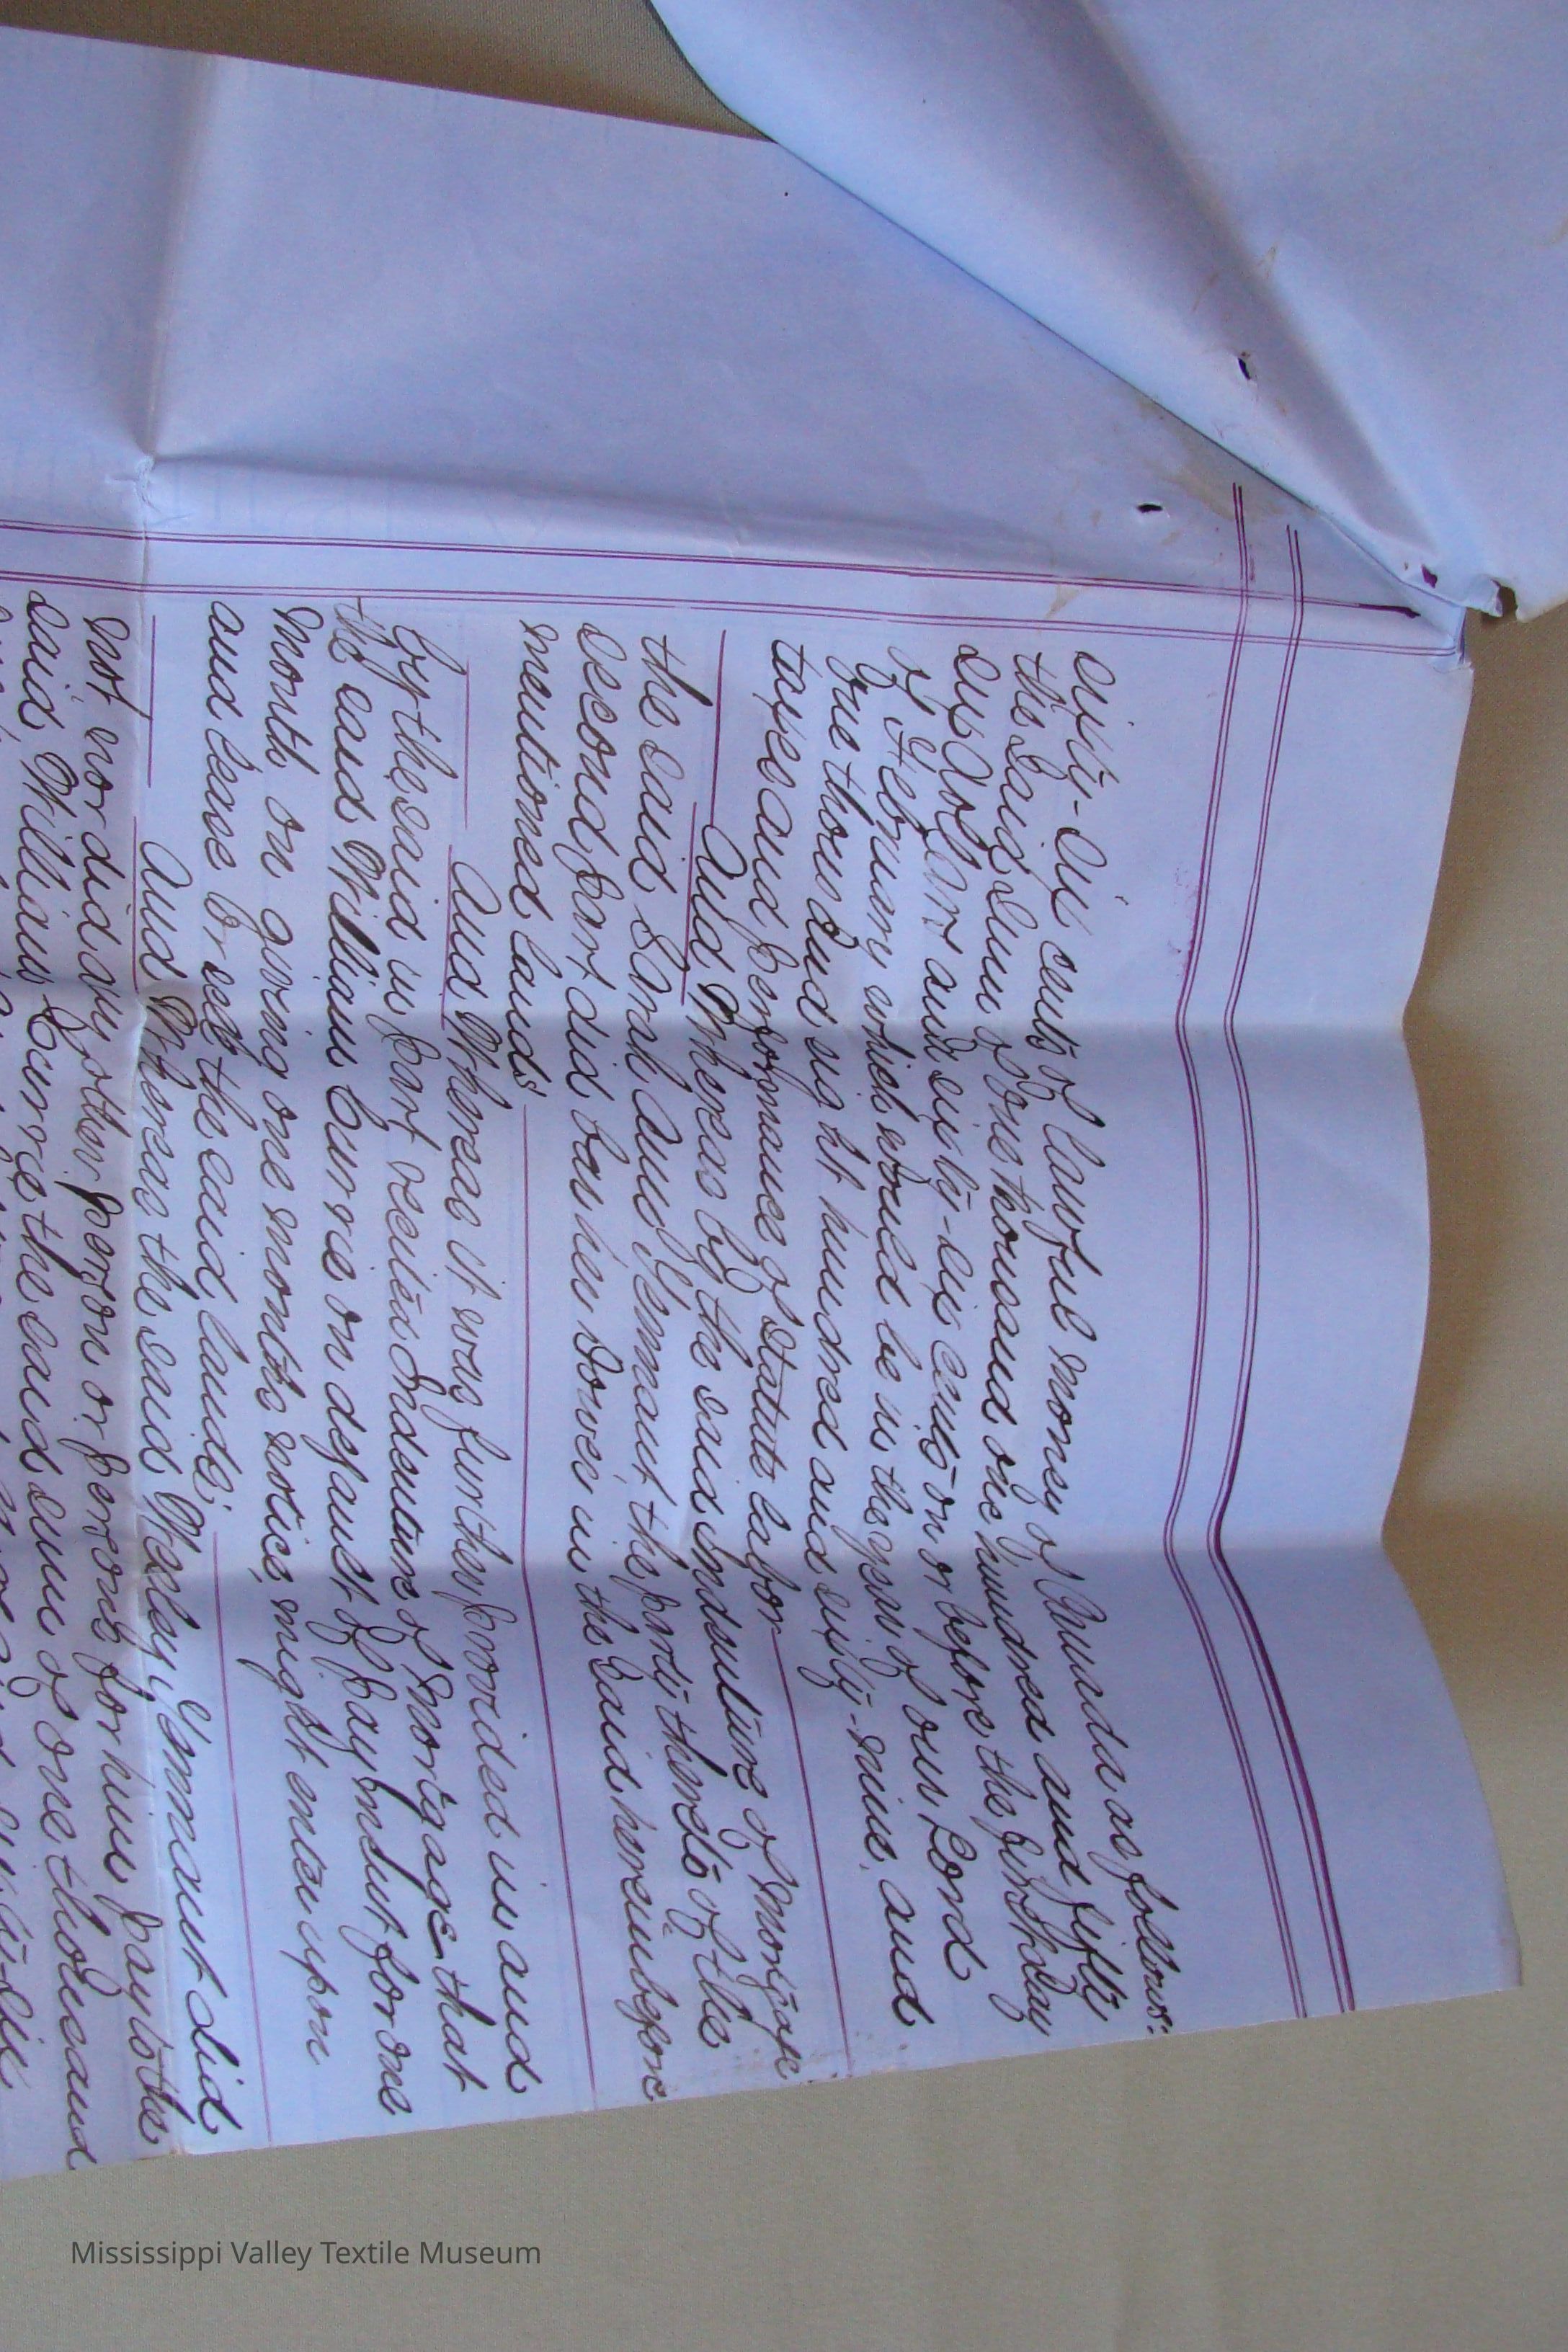 sixty-six cents of lawful money of Canada as follows:
the said sum of One thousand one hundred and fifty
six Dollars and sixty-six cents on or before the first day
of February which would be in the year of our Lord
One thousand eight hundred and sixty-nine, and
taxes and performance of Statute labor
And Whereas by the said Indenture of Mortgage
the said Sarah Ann Yermaut the party thereto of the
second part did bar her Dower in the said hereinbefore
mentioned lands
And Whereas it was further provided in and
by the said in part recited Indenture of Mortgage that
the said William Currie on default of payment for one
month on giving one months notice, might enter upon
and lease or sell the said lands;
And Whereas the said Wesley Yermaut did
not nor did any other person or persons for him pay to the
said William Currie the said sum of one thousand
Mississippi Valley Textile Museum